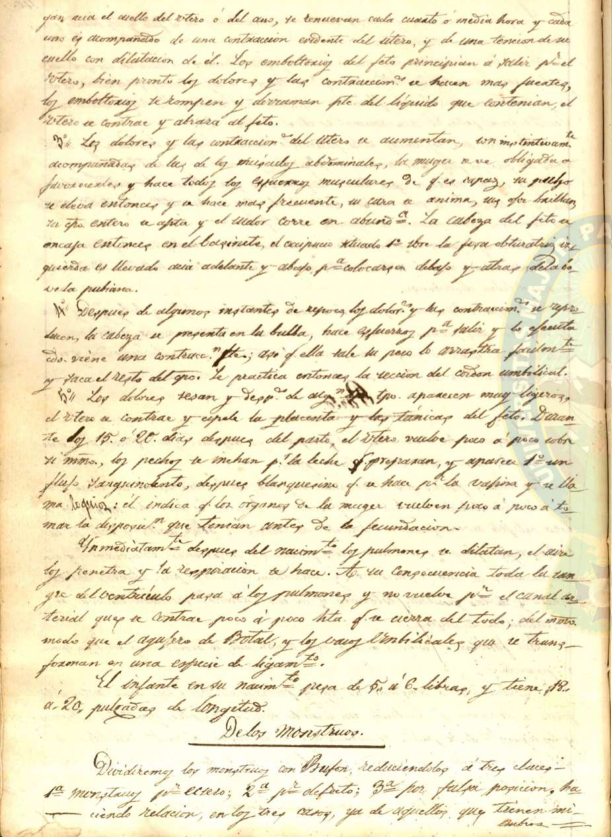 yan acia el cuello del Utero ó del ano, se renuevan cada cuarto ó media hora y cada
uno es acompañado de una contraccion evidente del utero, y de una tencion de su
cuello con dilatacion de él. Los emboltorios del feto principian á salir pr el
Utero, bien pronto los dolores y las contracciones se hacen mas fuertes,
los emboltorios se rompen y derraman pte del líquido que contenian, el
Utero se contrae y abraza al feto.
3º Los dolores y las contracciones del Utero se aumentan, son instintivamte
acompañadas de las de los músculos abdominales, la muger se ve obligada a
favorecerles y hace todos los esfuerzos musculares de q es capaz, su pulso
se eleva entonces y se hace mas frecuente, su cara se anima, sus ojos brillan,
su cpo entero se agita y el sudor corre en abundа. La cabeza del feto se
encaja entonces en el basinite, el occipucio situado 1º sobre la fosa obturatriz iz-
quierda es llevado acia adelante y abajo pa colocarse debajo y atras de la bo-
ve la pubiana.
4º Despues de algunos instantes de reposo, los dolores y las contracciones se apre-
suran, la cabeza se presenta en la bulba, hace esfuerzos pa salir y lo ejecuta
cdo viene una contraccn fte; asi q ella sale su peso lo arrastra
y saca el resto del cpo. Se practica entonces la seccion del cordon umbilical.
5º Los dolores cesan y despues de alg tpo. aparecen muy lijeros,
el Utero se contrae y espele la placenta y las tunicas del feto. Duran-
te los 15. ó 20. dias despues del parto, el Utero vuelve poco á poco sobre
si mmo, los pechos se inchan pr la leche q preparan, y aparece 1º un
flujo sanguinolento, despues blanquesino q se hace pr la vagina y se lla-
ma loquios: él indica q los organos de la muger vuelven poco á poco á to-
mar la disposicn que tenian antes de la fecundacion.
Inmediatamte despues del nacimto los pulmones se dilatan, el aire
los penetra y la respiracion se hace. A su consecuencia toda la san-
gre del ventriculo pasa á los pulmones y no vuelve pr el canal ar-
terial que se contrae poco á poco hta q se cierra del todo; del mmo
modo que el agujero de Botal, y los vasos Umbilicales que se trans-
forman en una especie de ligamto.
El infante en su nacimto pesa de 5. á 6. libras, y tiene 18.
á 20. pulgadas de longitud.
De los Monstruos.
Dividiremos los monstruos con Bufon, reduciendolos á tres clases
1ª monstruos pr esceso; 2ª pr defecto; 3ª por falsa posicion, ha-
ciendo relacion, en los tres casos, ya de aquellos que tienen mi-
embros